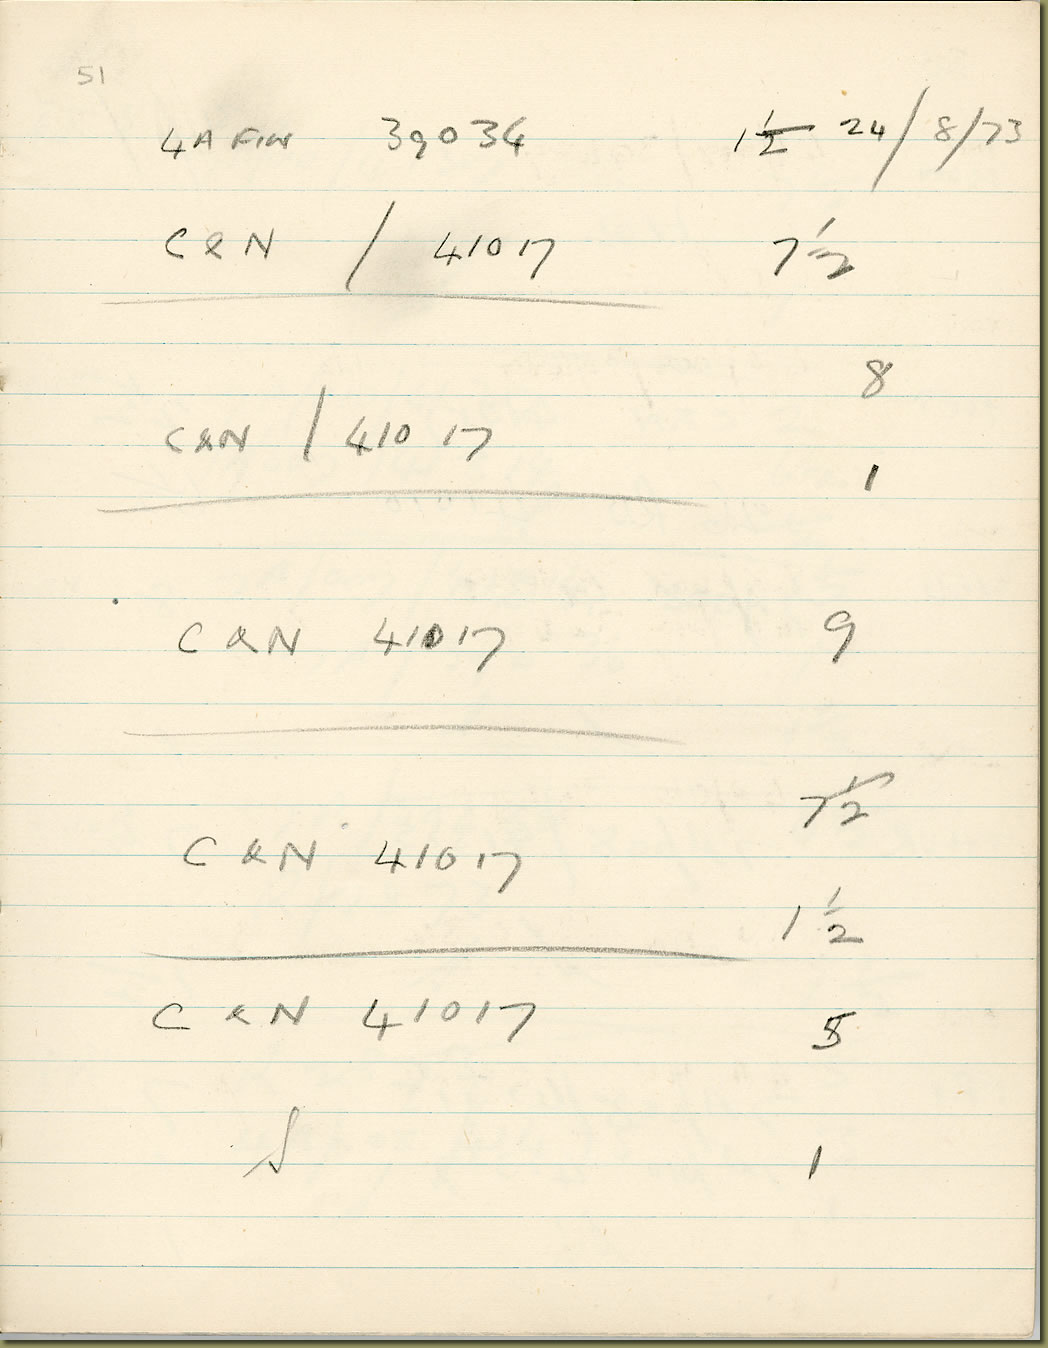 51
4A FIN 39034 1½ 24/8/73
C&N / 41017 7½
8
C&N / 41017
1
C&N 41017 9
7½
C&N 41017
1½
C&N 41017 5
S 1